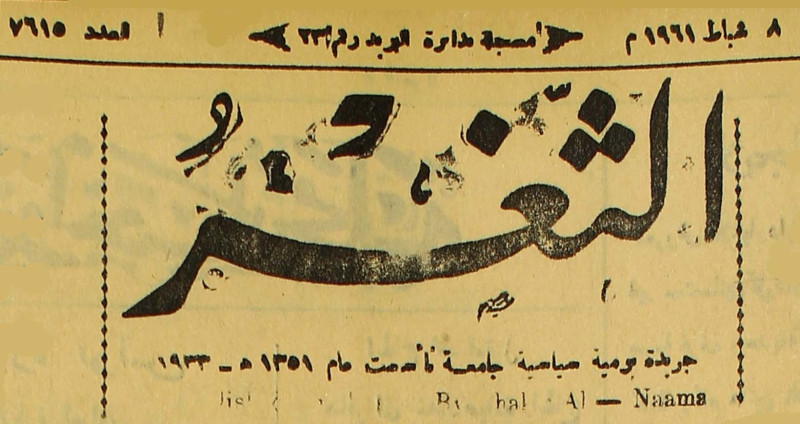 ٨ شباط ١٩٦١ م مسجلة بدائرة البريد رقم ٢٣١ العدد ٧٦١٥
الثغر
جريدة يومية سياسية جامعة تأسست عام ١٣٥١ هـ - ١٩٣٣
Al — Naama